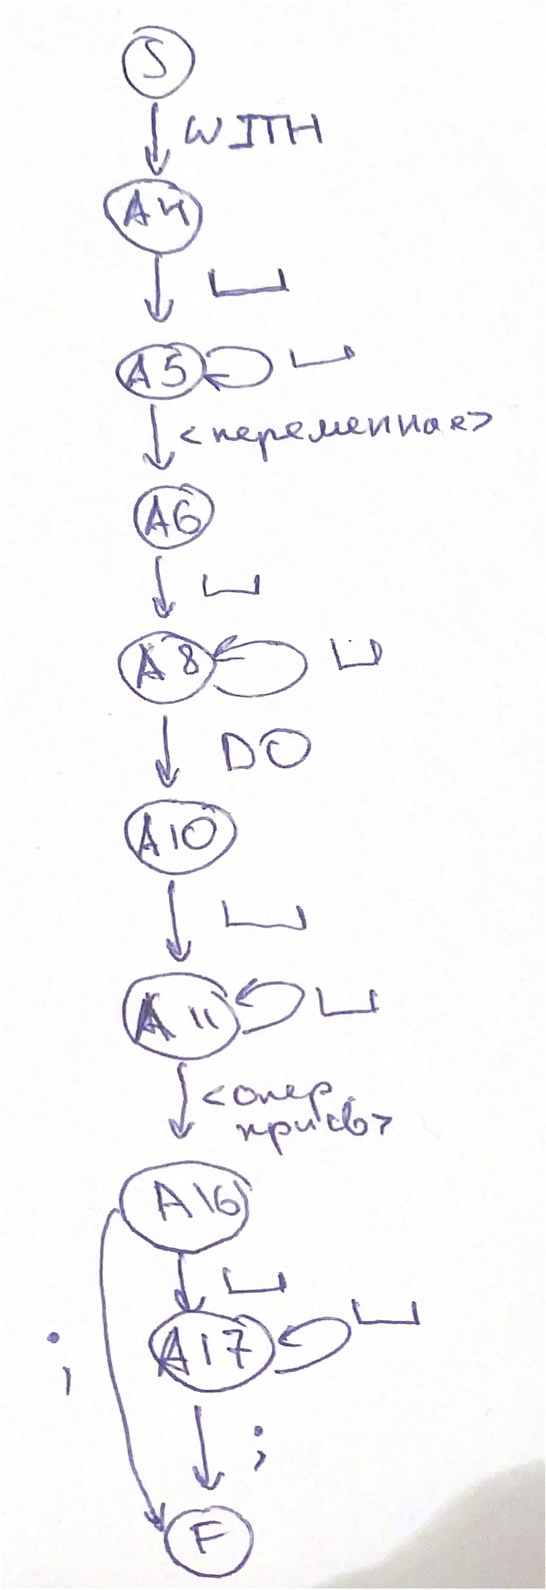 S
WITH
A4
␣
A5 ␣
<переменная>
A6
␣
A8 ␣
DO
A10
␣
A11 ␣
<опер.
присв>
A16
␣
A17 ␣
;
;
F